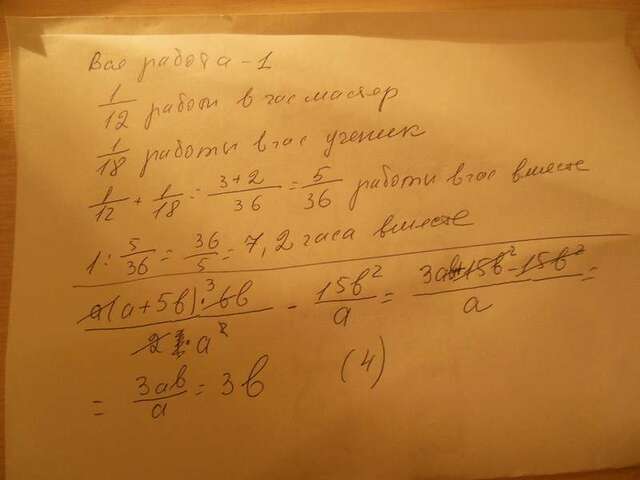 Вся работа - 1
1/12 работы в час мастер
1/18 работы в час ученик
1/12 + 1/18 = 3+2/36 = 5/36 работы в час вместе
1 : 5/36 = 36/5 = 7,2 часа вместе
a(a+5b)·³6b/2·a² - 15b²/a = 3ab+15b²-15b²/a =
= 3ab/a = 3b (4)